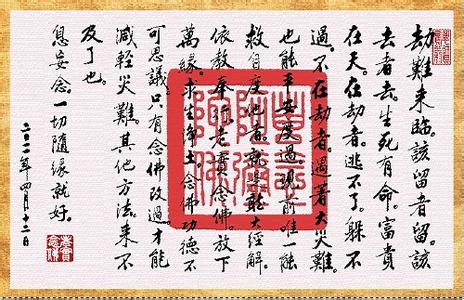 劫難来臨。該留者留。該
去者去。生死有命。富貴
在天。在劫者。逃不了。躲不
過。不在劫者。遇著大災難。
也能平安度過。現前唯一能
救自度他者。就是大經解。
依教奉行。老實念佛。放下
萬緣。求生淨土。念佛功德不
可思議。只有念佛改過。才能
減輕災難。其他方法。来不
及了也。
息妄念。一切隨緣就好。
二〇一一年四月十二日
老實念佛